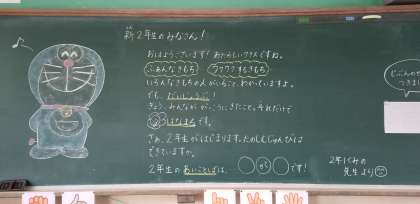 新2年生のみなさん！
おはようございます！あたらしいクラスですね。
ふあんなきもち ワクワクするきもち
いろんなきもちの人がいること、わかっていますよ。
でも、だいじょうぶ！
きょう、みんなが、がっこうにきたこと。それだけで
はなまるです。
さぁ、2年生が、はじまります。たのしむじゅんびは
できていますか。
2年生のあいことばは、○が○○です！
2年1くみの
先生より
じぶんのせ